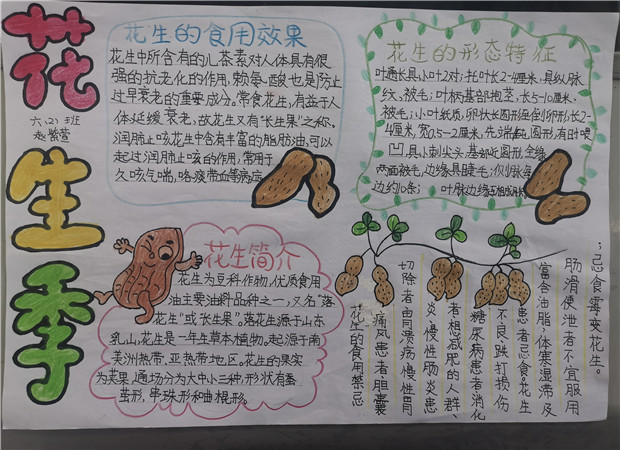 花生季
六.21班
花生的食用效果
花生中所含有的儿茶素对人体具有很
强的抗老化的作用,赖氨酸也是防止
过早衰老的重要成分。常食花生,有益于人
体延缓衰老,故花生又有"长生果"之称。
润肺止咳花生中含有丰富的脂肪油,可以
起过润肺止咳的作用,常用于
久咳气喘,咯痰带血等病症
花生的形态特征
叶通长具小叶2对;托叶长2-4厘米,具纵脉
纹,被毛;叶柄基部抱茎,长5-10厘米,
被毛;小叶纸质,卵状长圆形至倒卵形,长2-
4厘米,宽0.5-2厘米,先端钝圆形,有时微
凹,具小刺尖头,基部近圆形,全缘
两面被毛,边缘具睫毛;侧脉每
边约10条;叶脉边缘互相
花生简介
花生为豆科作物,优质食用
油主要油料品种之一,又名"落
花生"或"长生果"。落花生源于山东
乳山,花生是一年生草本植物。起源于南
美洲热带、亚热带地区。花生的果实
为荚果,通场分为大中小三种,形状有蚕
茧形,串珠形和曲棍形。
花生的食用禁忌
痛风患者胆囊
切除者,胃溃疡慢性胃
炎慢性肠炎患
者想减肥的人群,
糖尿病患者消化
不良跌打损伤
患者忌食花生
富含油脂,体寒湿滞及
肠滑便泄者不宜服用
;忌食霉变花生。